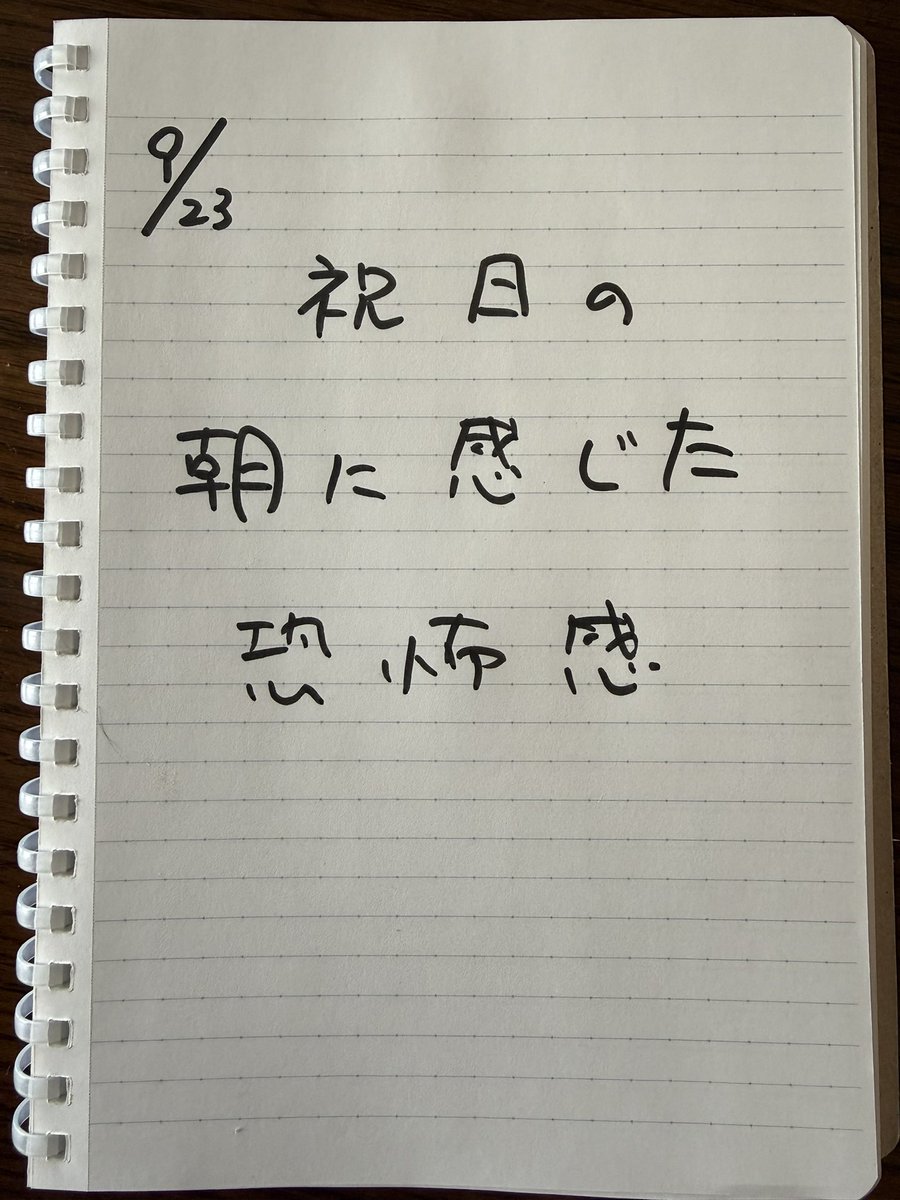 9/23
祝日の
朝に感じた
恐怖感